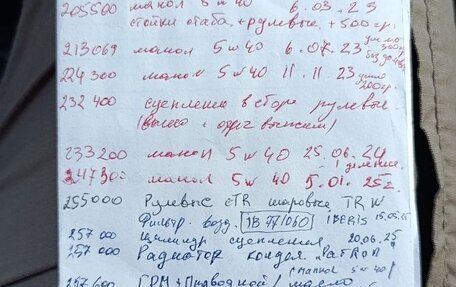 205500 манол 5w40 6.03.23
стойки стаба, + рулевые, +500гр.
213069 манол 5w40 6.07.23
224300 манол 5w40 11.11.23 ушло 200гр.
232400 сцепление в сборе рулевые
(выжим)
233200 манол 5w40 25.06.24
1 деление
247300 манол 5w40 5.01.25г.
255000 Рулевые CTR шаровые TRW
Фильтр возд. IB771060 IBERIS 15.05.25
257000 Цилиндр сцепления 20.06.25
257000 Радиатор кондея "PATRON"
(Mannol 5w40)
257600 ГРМ + Приводной / масло